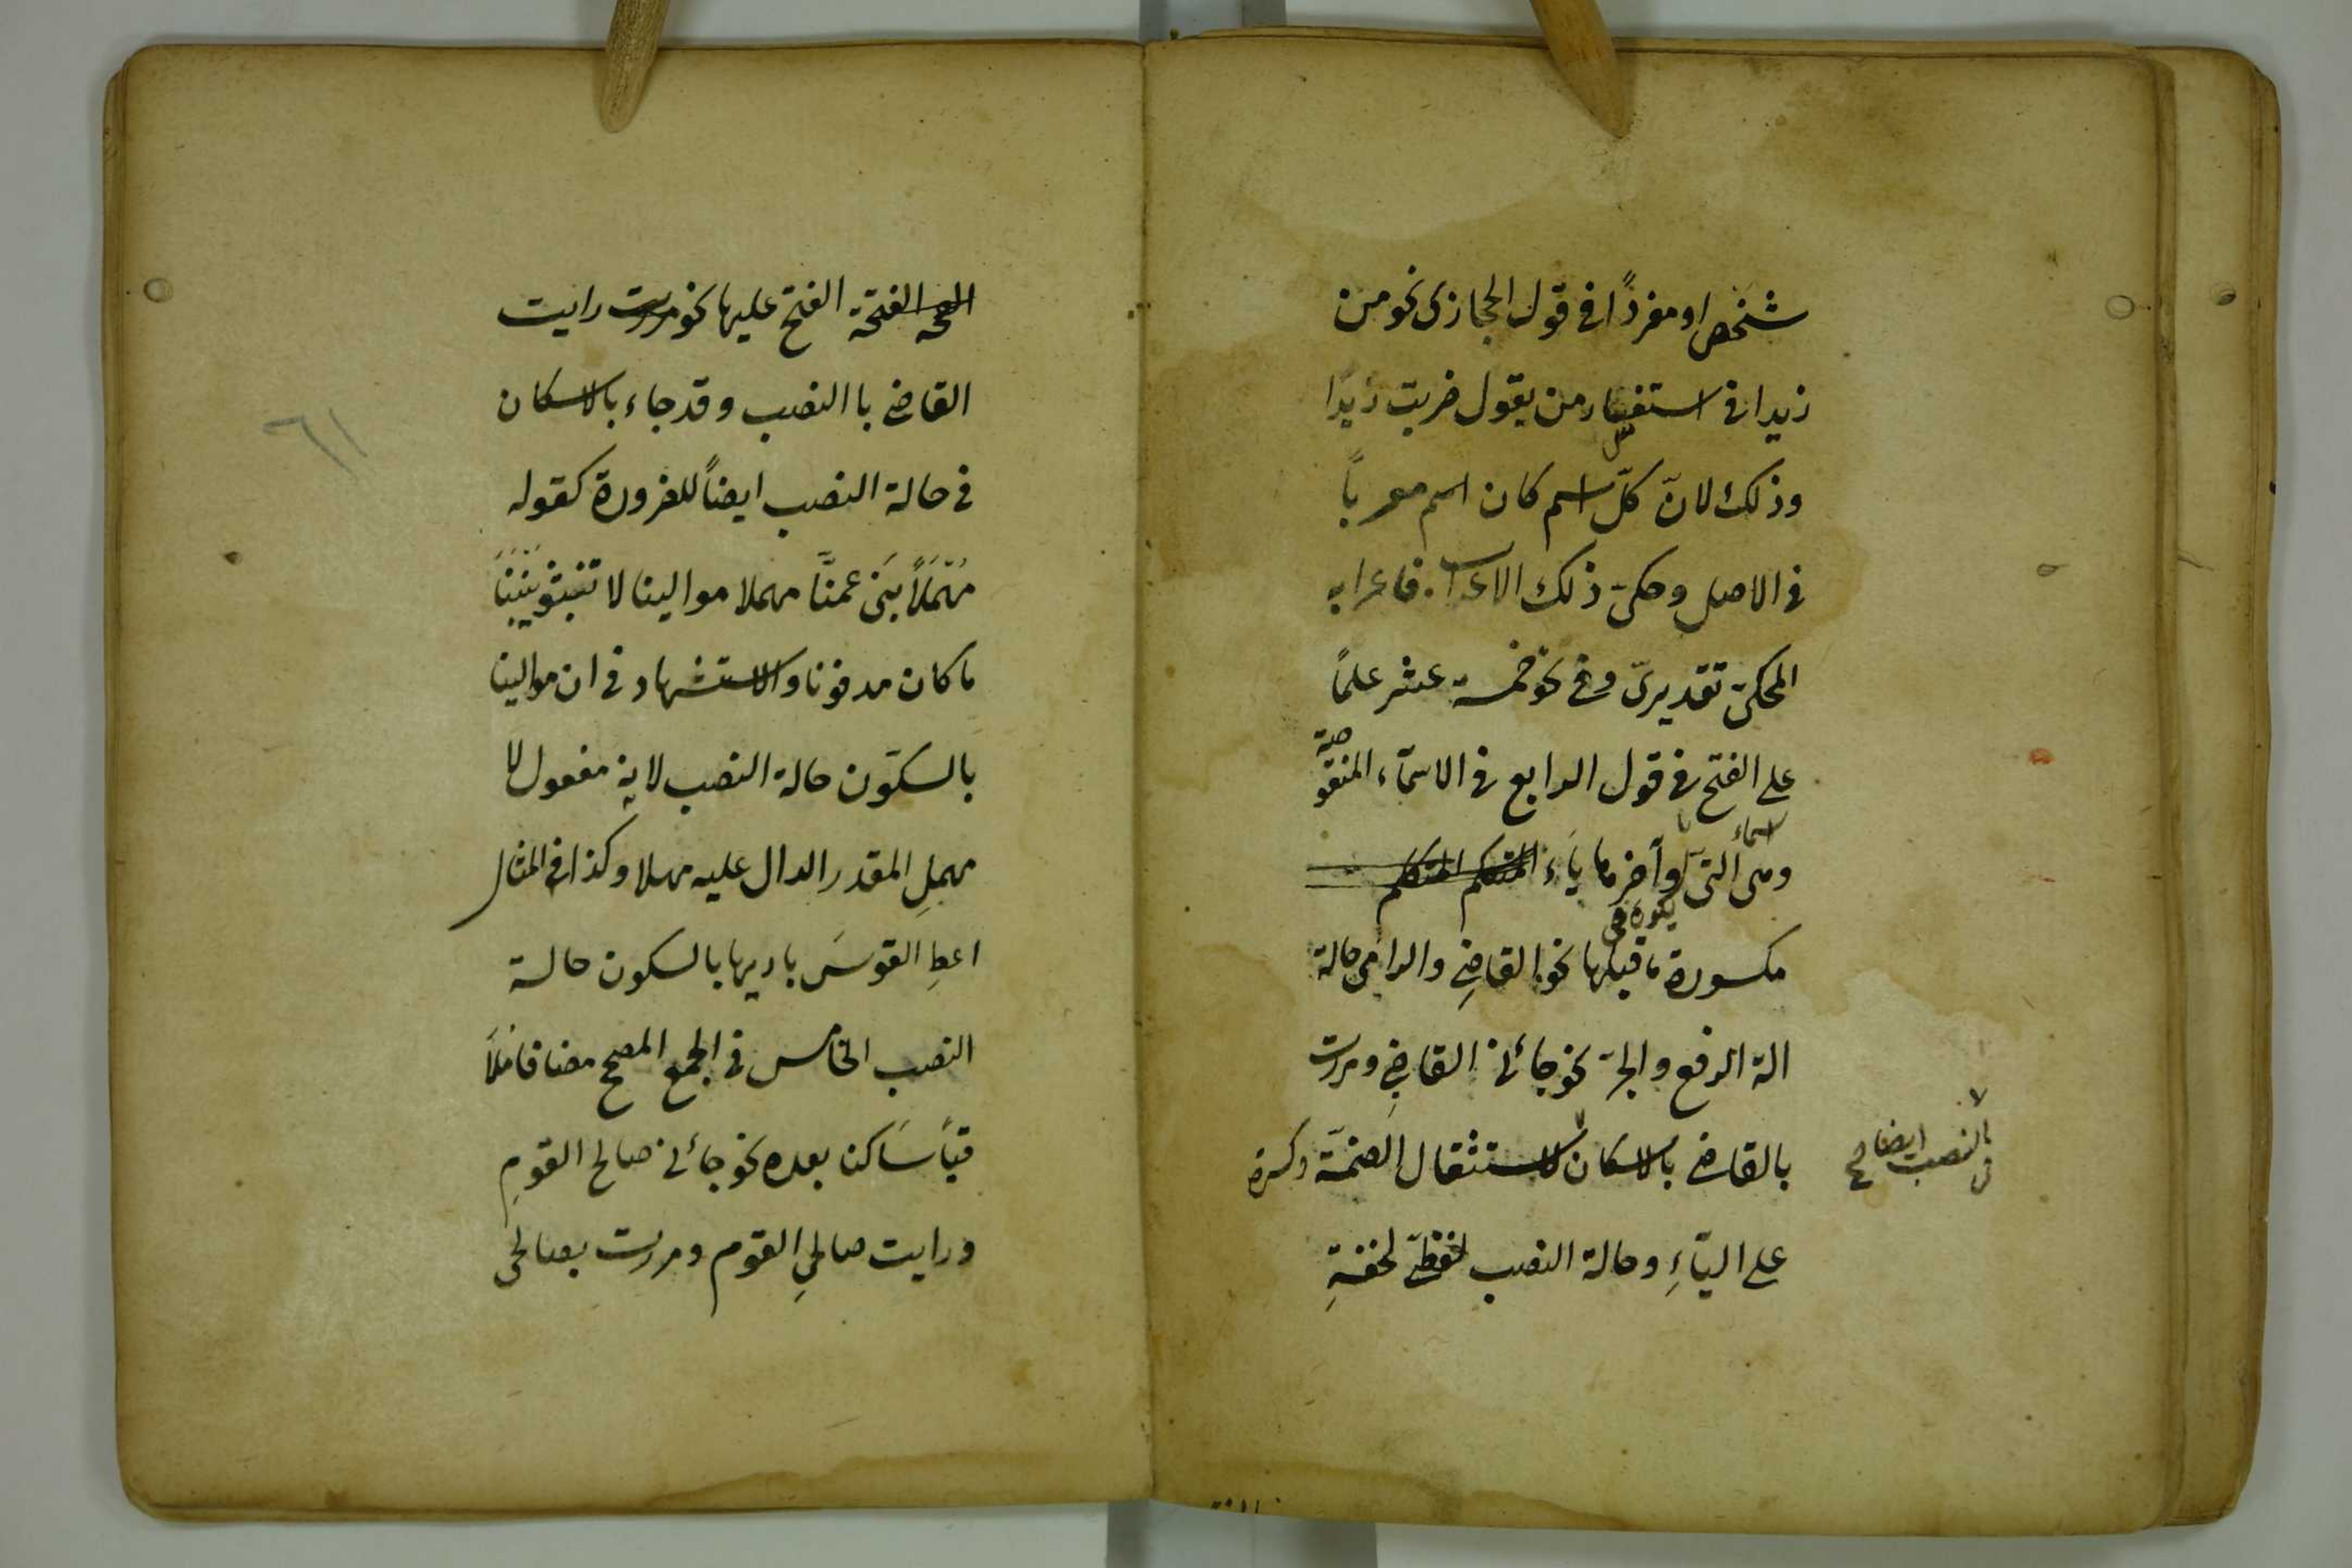 شخص او مفرداً فى قول الحجازى نحو من
زيدا فى استفسار من يقول ضربت زيدًا
وذلك لانّ كلّ اسم كان اسم معرباً
فى الاصل وحكىّ ذلك الاعراب فاعرابه
المحكىّ تقديرىّ وفى نحو خمسة عشر علمًا
على الفتح فى قول الرابع فى الاسمآء المنقوصة
وهى اسماء التى آخرها ياء المتكلم المتكلم
يكون فى
مكسورة ما قبلها نحو القاضِى والرامى حالة
الة الرفع والجرّ نحو جائنى القاضِى ومررت
بالقاضى بالاسكان لاستثقال الضمّة وكسرة
بالنصب ايضا
على اليّاءِ وحالة النصب لفظىّ لخفةِ
الفتحة الفتح عليها نحو مررت رايت
القاضى با النصب وقد جاء بالاسكان
فى حالة النصب ايضاً للضرورة كقوله
مَهَمَلاً بَنى عمنَّا مهملا موالينا لا تنبشو بَيْنَنَا
ما كان مدفونا والاستشهاد فى ان موالينا
بالسكون حالة النصب لانه مفعول لا
مهملِ المقدر الدال عليه مهلا وكذا فى المثال
اعطِ القوسَ باريها بالسكون حالة
النصب الخامس فى الجمع المصحح مضافا ملاَ
قيًا سَاكنا بعده نحو جائنى صالح القومِ
ورايت صالحىِ القوم ومررت بصالحى
٦١